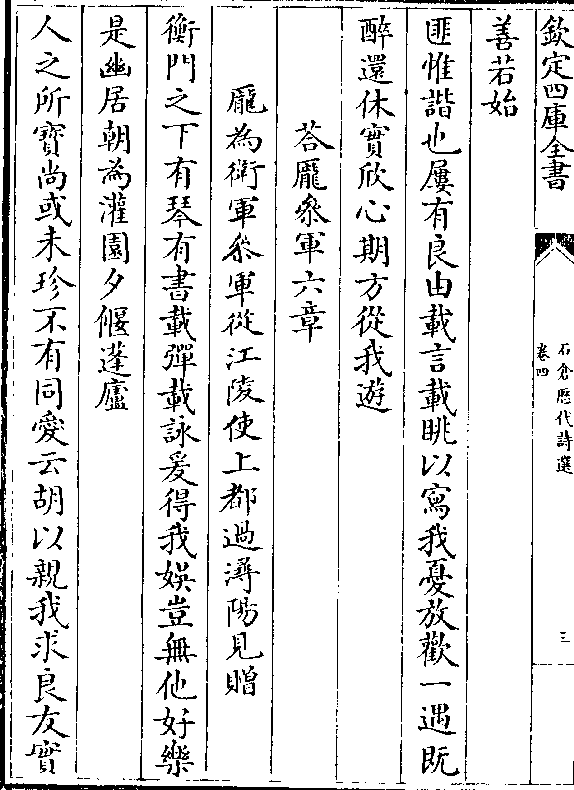 欽定四庫全書
石倉歷代詩選
卷四
三
善若始
匪惟諧也屢有良由載言載眺以寫我憂放歡一遇既
醉還休實欣心期方從我遊
荅龐叅軍六章
龐為衛軍叅軍從江陵使上都過潯陽見贈
衡門之下有琴有書載彈載詠爰得我娛豈無他好樂
是幽居朝為灌園夕偃蓬廬
人之所寳尚或未珍不有同愛云胡以親我求良友實